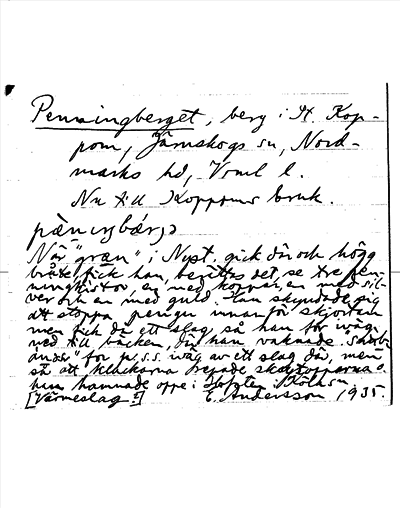 Penningberget, berg i St. Kop-
pom, Järnskogs sn, Nord-
marks hd, Vrml l.
Nu till Koppoms bruk.
pæningbærjə
När "græn" i Nyst. gick där och högg
bråte fick han, berättas det, se tre pen-
ningkistor, en med koppar, en med sil-
ver och en med guld. Han skyndade sig
att stoppa pengar innanför skjortan
men fick då ett slag, så han for iväg
ned till bäcken, där han vaknade.
för p.s.s. iväg av ett slag där, men
så att klackarna
han hamnade oppe i Köla sn
[Värmeslag?] E. Andersson 1935.